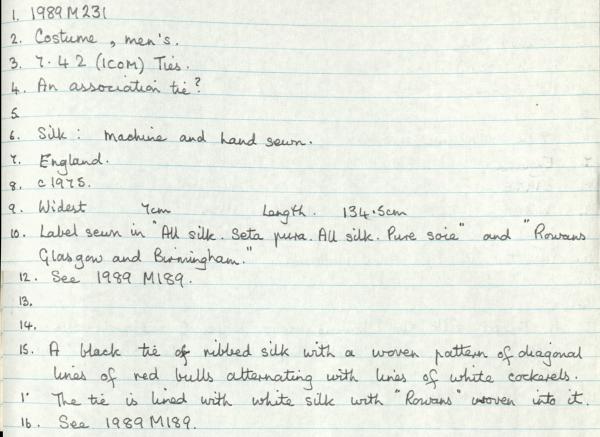 1. 1989 M 231
2. Costume, men's.
3. 7.42 (ICOM) Ties.
4. An association tie?
5.
6. Silk: machine and hand sewn.
7. England.
8. c1975.
9. Widest 7cm Length. 134.5cm
10. Label sewn in "All silk. Seta pura. All silk. Pure soie" and "Rowans
Glasgow and Birmingham."
12. See 1989 M189.
13.
14.
15. A black tie of ribbed silk with a woven pattern of diagonal
lines of red bulls alternating with lines of white cockerels.
1' The tie is lined with white silk with "Rowans" woven into it.
16. See 1989 M189.